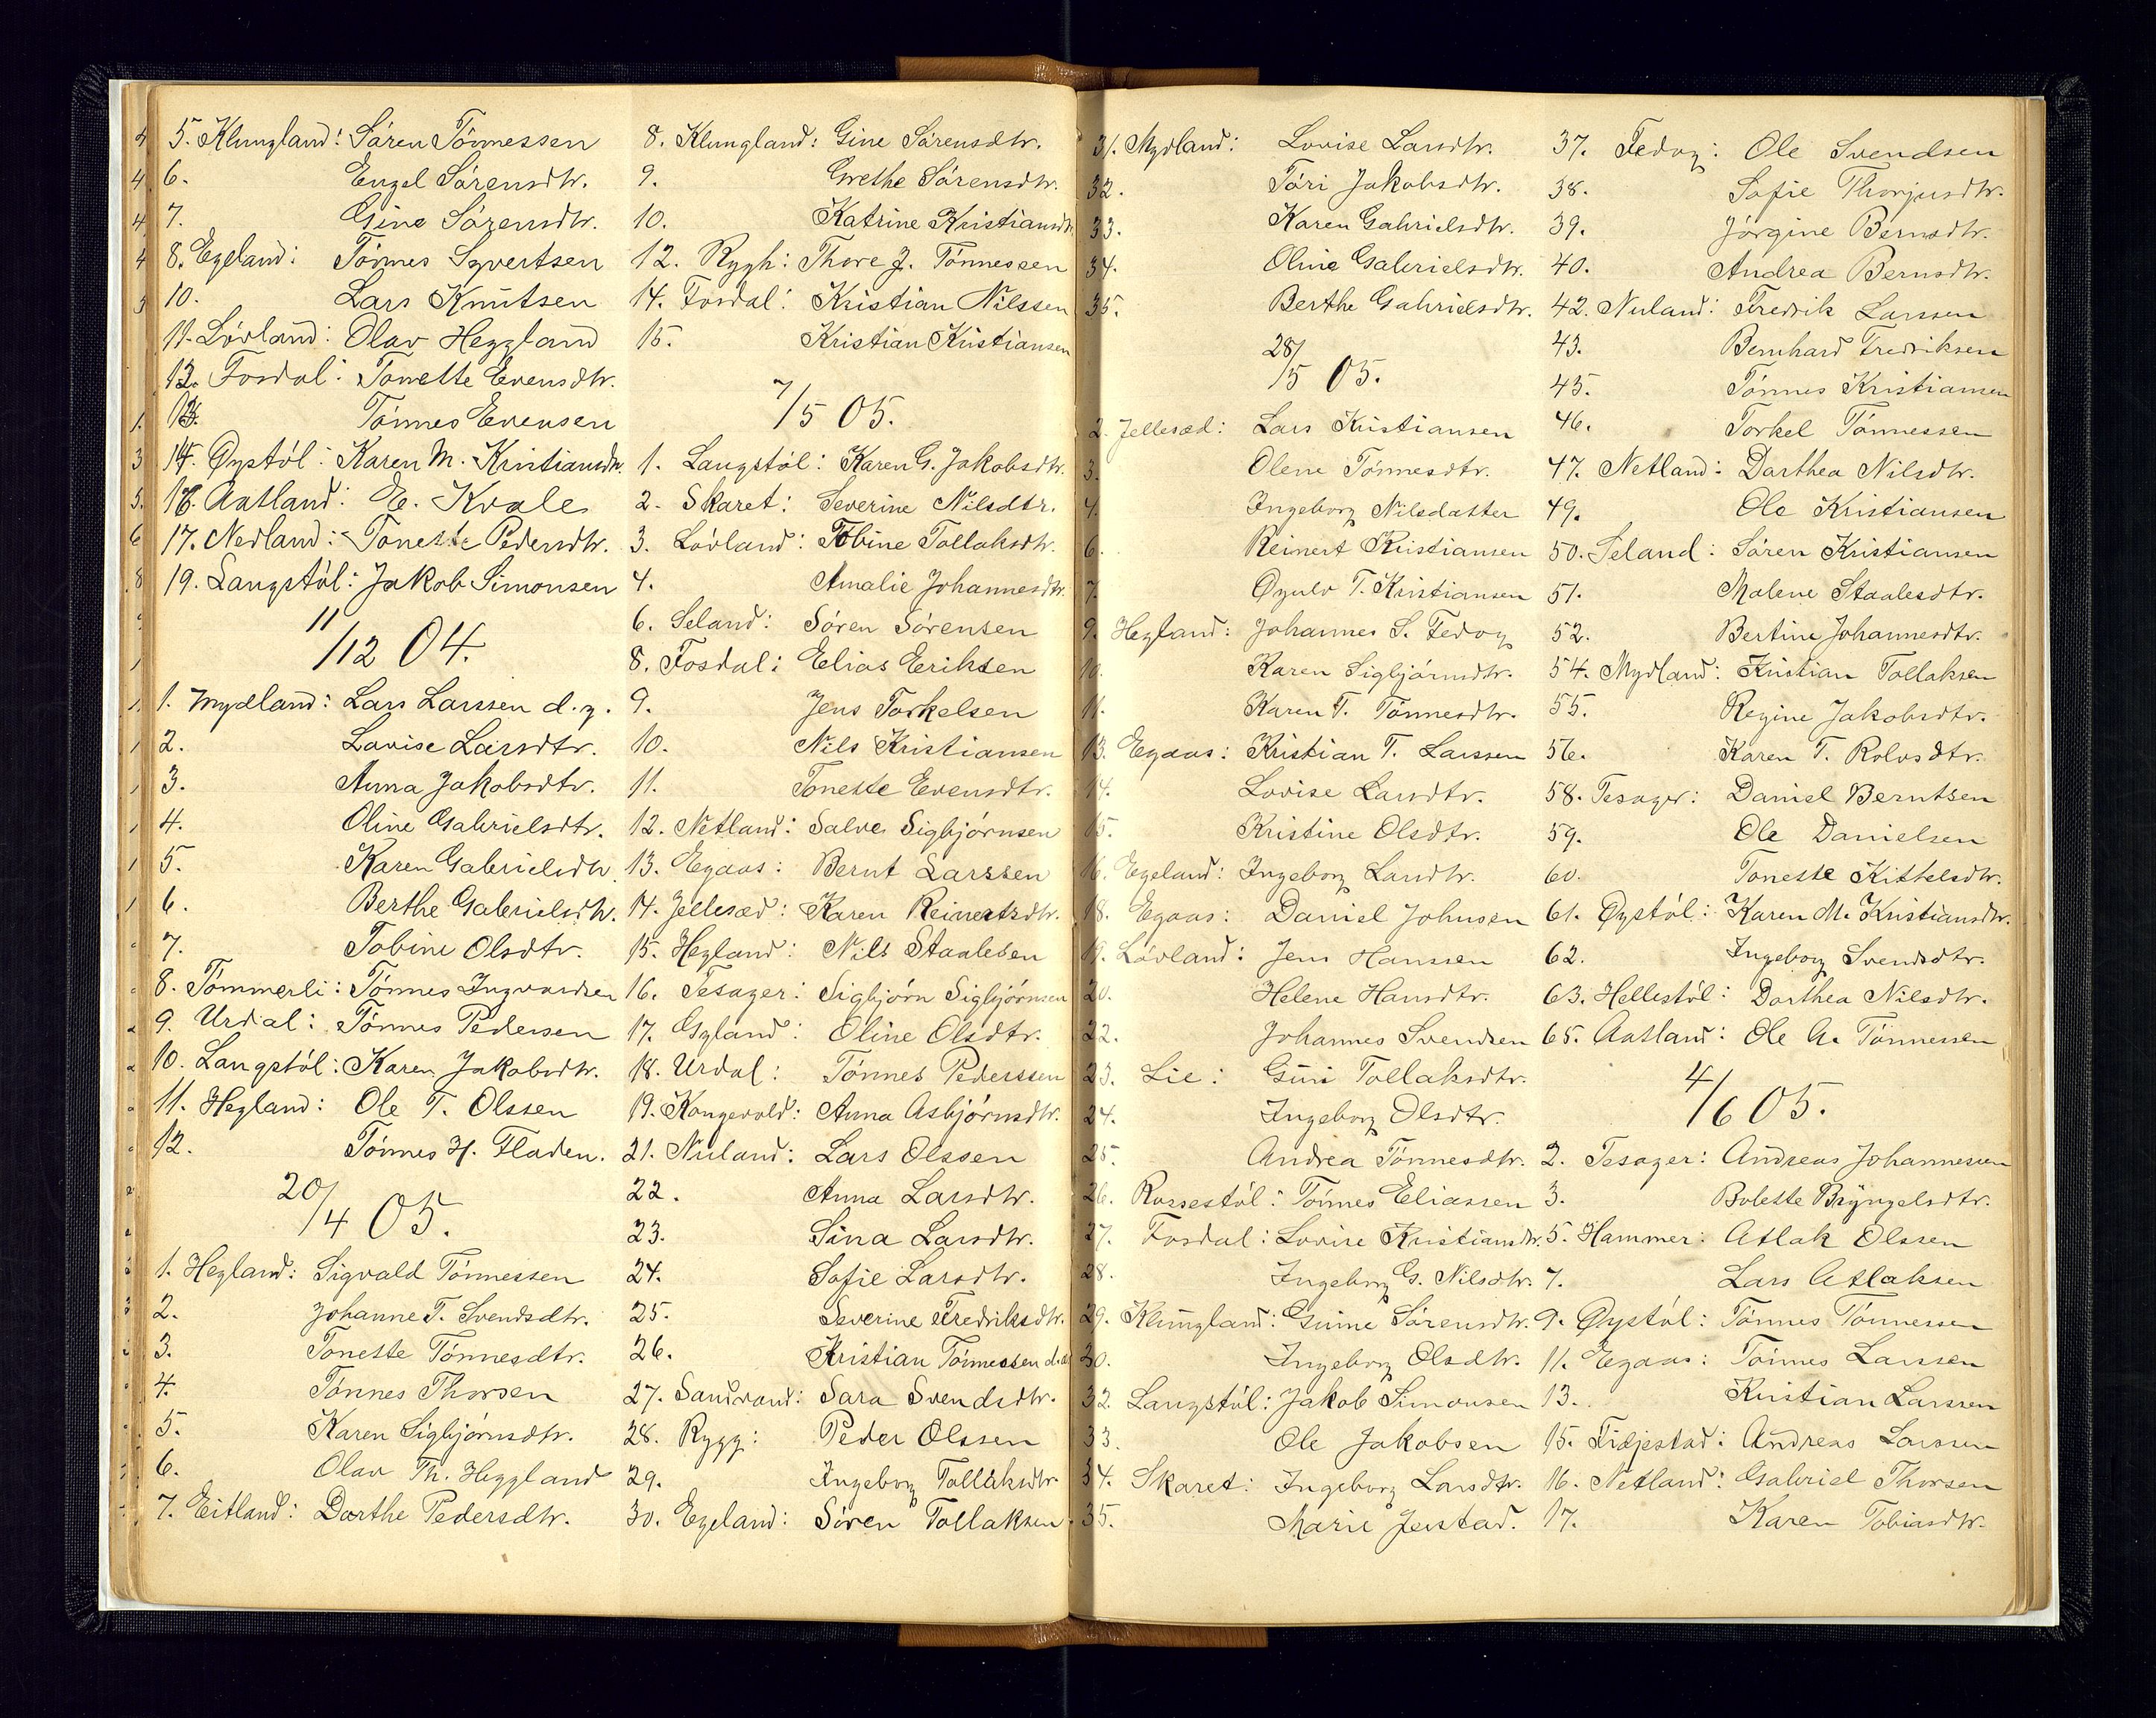 5. Klungland: Sören Tönnessen
6. Engel Sörensdtr.
7. Gine Sörensdtr.
8. Egeland: Tönnes Syvertsen
10. Lars Knutsen
11. Lövland: Olav Heggland
12. Fosdal: Tonette Evensdtr.
13. Tönnes Evensen
14. Øystöl: Karen M. Kristiansdtr.
16. Aatland: E. Kvale
17. Nedland: Tonette Pedersdtr.
19. Langstöl: Jakob Simonsen
11/12 04.
1. Mydland: Lars Larssen d.y.
2. Lovise Larsdtr.
3. Anna Jakobsdtr.
4. Oline Gabrielsdtr.
5. Karen Gabrielsdtr.
6. Berthe Gabrielsdtr.
7. Tobine Olsdtr.
8. Tömmerli: Tönnes Ingvardsen
9. Urdal: Tönnes Pedersen
10. Langstöl: Karen Jakobsdtr.
11. Hegland: Ole T. Olssen
12. Tönnes H. Fladen.
20/4 05.
1. Hegland: Sigvald Tönnessen
2. Johanne T. Svendsdtr.
3. Tonette Tönnesdtr.
4. Tönnes Thorsen
5. Karen Sigbjörnsdtr.
6. Olav Th. Heggland
7. Eitland: Dorthe Pedersdtr.
8. Klungland: Gine Sörensdtr.
9. Grethe Sörensdtr.
10. Katrine Kristiansdtr.
12. Rygh: Thore J. Tönnessen
14. Fosdal: Kristian Nilssen
15. Kristian Kristiansen
7/5 05.
1. Langstöl: Karen G. Jakobsdtr.
2. Skaret: Severine Nilsdtr.
3. Lövland: Tobine Tollaksdtr.
4. Amalie Johannesdtr.
6. Seland: Sören Sörensen
8. Fosdal: Elias Eriksen
9. Jens Torkelsen
10. Nils Kristiansen
11. Tonette Evensdtr.
12. Netland: Salve Sigbjörnsen
13. Egaas: Bernt Larssen
14. Jellesæd: Karen Reinertsdtr.
15. Hegland: Nils Staalesen
16. Tesager: Sigbjörn Sigbjörnsen
17. Gyland: Oline Olsdtr.
18. Urdal: Tönnes Pederssen
19. Kongevold: Anna Asbjörnsdtr.
21. Nuland: Lars Olssen
22. Anna Larsdtr.
23. Sina Larsdtr.
24. Sofie Larsdtr.
25. Severine Fredriksdtr.
26. Kristian Tönnessen
27. Sandvand: Sara Svendsdtr.
28. Rygg: Peder Olssen
29. Ingeborg Tollaksdtr.
30. Egeland: Sören Tollaksen
31. Mydland: Lovise Larsdtr.
32. Töri Jakobsdtr.
33. Karen Gabrielsdtr.
34. Oline Gabrielsdtr.
35. Berthe Gabrielsdtr.
28/5 05.
2. Jellesæd: Lars Kristiansen
3. Olene Tönnesdtr.
4. Ingeborg Nilsdatter
6. Reinert Kristiansen
7. Øyulv T. Kristiansen
9. Hegland: Johannes S. Fedog
10. Karen Sigbjörnsdtr.
11. Karen T. Tönnesdtr.
13. Egaas: Kristian T. Larssen
14. Lovise Larsdtr.
15. Kristine Olsdtr.
16. Egeland: Ingeborg Larsdtr.
18. Egaas: Daniel Johnsen
19. Lövland: Jens Hanssen
20. Helene Hansdtr.
22. Johannes Svendsen
23. Lie: Guri Tollaksdtr.
24. Ingeborg Olsdtr.
25. Andrea Tönnesdtr.
26. Rossestöl: Tönnes Eliassen
27. Fosdal: Lovise Kristiansdtr.
28. Ingeborg G. Nilsdtr.
29. Klungland: Gunne Sörensdtr.
30. Ingeborg Olsdtr.
32. Langstöl: Jakob Simonsen
33. Ole Jakobsen
34. Skaret: Ingeborg Larsdtr.
35. Marie Jerstad.
37. Fedog: Ole Svendsen
38. Sofie Thorjusdtr.
39. Jörgine Bernsdtr.
40. Andrea Bernsdtr.
42. Nuland: Fredrik Larssen
43. Bernhard Fredriksen
45. Tönnes Kristiansen
46. Torkel Tönnessen
47. Netland: Dorthea Nilsdtr.
49. Ole Kristiansen
50. Seland: Sören Kristiansen
51. Malene Staalesdtr.
52. Bertine Johannesdtr.
54. Mydland: Kristian Tollaksen
55. Regine Jakobsdtr.
56. Karen T. Rolvsdtr.
58. Tesager: Daniel Berntsen
59. Ole Danielsen
60. Tonette Kittelsdtr.
61. Øystöl: Karen M. Kristiansdtr.
62. Ingeborg Svendsdtr.
63. Hellestöl: Dorthea Nilsdtr.
65. Aatland: Ole A. Tönnessen
4/6 05.
2. Tesager: Andreas Johannessen
3. Bolette Bryngelsdtr.
5. Hammer: Atlak Olssen
7. Lars Atlaksen
9. Øystöl: Tönnes Tönnessen
11. Egaas: Tönnes Larssen
13. Kristian Larssen
15. Fidjestad: Andreas Larssen
16. Netland: Gabriel Thorsen
17. Karen Tobiasdtr.